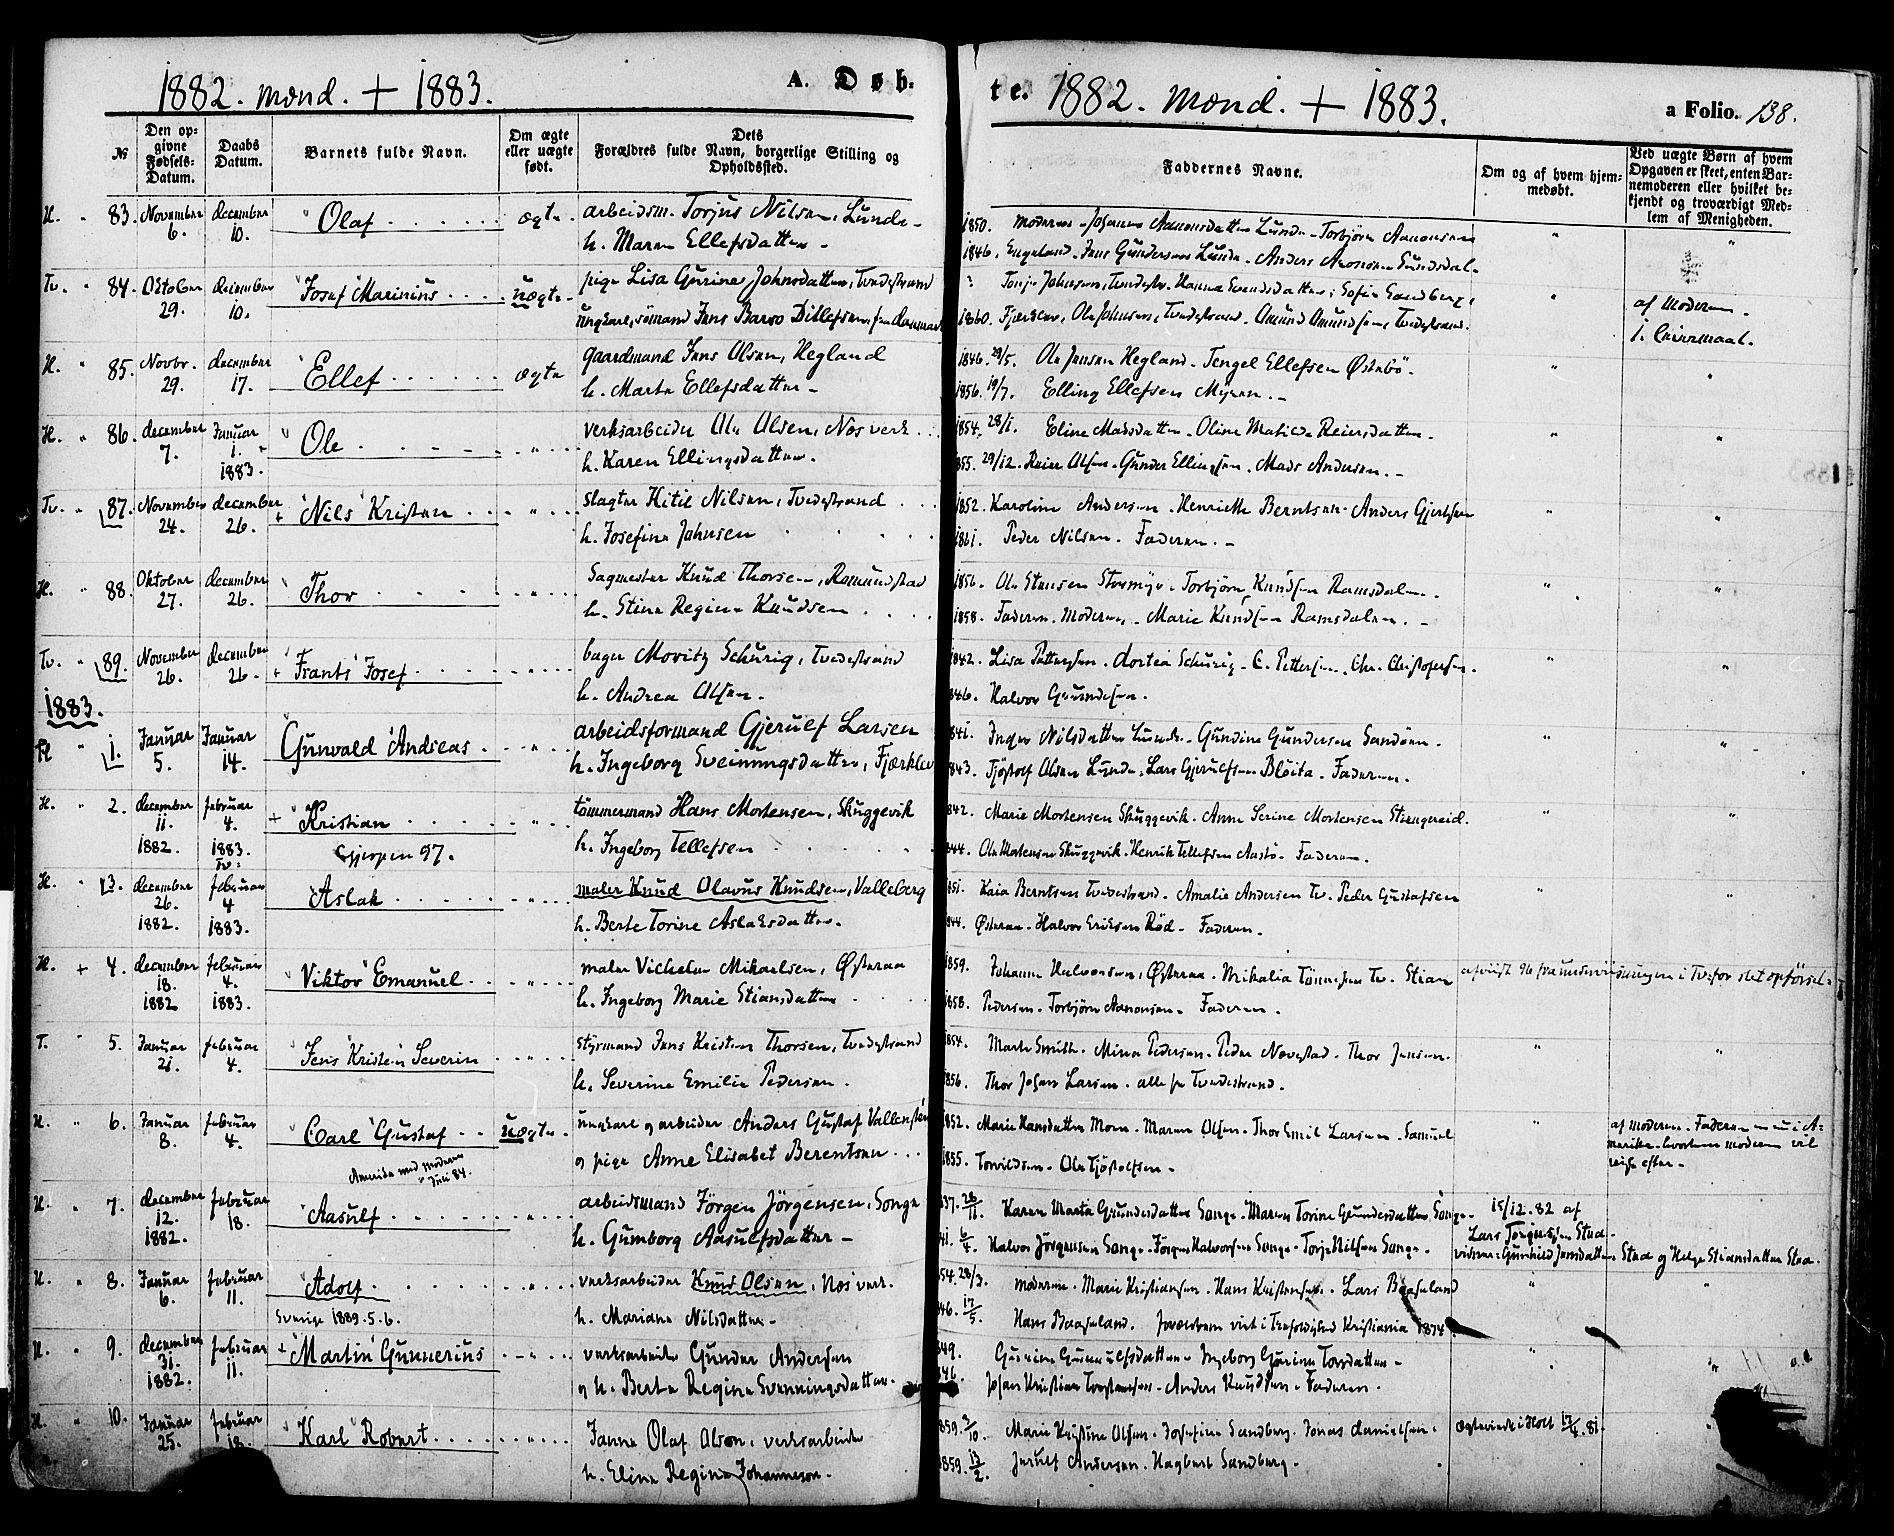 1882. mænd. + 1883.
A. Døb-
te. 1882. mænd. + 1883.
a Folio. 138.
№
Den op-
givne
Fødsels-
Datum.
Daabs
Datum.
Barnets fulde Navn.
Om ægte
eller uægte
født.
Dets
Forældres fulde Navn, borgerlige Stilling og
Opholdssted.
Faddernes Navne.
Om og af hvem hjem-
medøbt.
Ved uægte Børn af hvem
Opgaven er skeet, enten Bar-
nemoderen eller hvilket be-
kjendt og troværdigt Med-
lem af Menigheden.
H. " 83. November 6. december 10. Olaf ægte arbeidsm. Torjus Nilsen, Lunde
h. Maren Ellefsdatter
1850. moderen - Johanne Aanonsdatter Lunde - Torbjørn Aanonsen
1846. Engeland - Jens Gundersen Lunde - Anders Aronsen Sundsdal
Tv. " 84. Oktober 29. december 10. Josef Marinius uægte pige Lisa Gurine Johnsdatter, Tvedestrand
ungkarl, sømand Jens Barso Ditlefsen, fra danmark
? Tonje Johnsen, Tvedestr. Hanna Svendsdatter, Sofie Sandberg,
1860. Fjærkleiv, Ole Johnsen, Tvedestrand. Amund Amundsen, Tvedestrand.
af Moderen
i Leiermaal.
H. " 85. Novbr. 29. december 17. Ellef ægte gaardmand Jens Olsen, Hegland
h. Marte Ellefsdatter
1846. 29/5. Ole Jensen Hegland - Tengel Ellefsen Østebö
1856. 19/7. Elling Ellefsen Myren.
H. " 86. december 7. Januar 1. 1883. Ole " verksarbeider Ole Olsen, Næs verk
h. Karen Ellingsdatter.
1854. 28/1. Eline Madsdatter - Oline Matilde Reiersdatter
1855. 29/12. Reier Olsen - Gunder Ellingsen - Mads Andersen.
Tv. " 87. November 24. december 26. + Nils Kristen " slagter Kitil Nilsen, Tvedestrand
h. Josefine Johnsen
1852. Karoline Andersen - Henriette Berntsen - Anders Gjertsen
1861. Peder Nilsen - Faderen.
H. " 88. Oktober 27. december 26. Thor " Sagmester Knud Thorsen, Romundstad
h. Stine Regine Knudsen
1856. Ole Stensen Stormyr - Torbjørn Knudsen Ramsdalen
1858. Faderen. Moderen, - Marie Knudsen Ramsdalen.
Tv. " 89. November 26. december 26. + Frants Josef " bager Moritz Schurig, Tvedestrand
h. Andrea Olsen.
1842. Lisa Pettersen - dortea Schurig - C. Pettersen, Chr. Christofersen
1846. Halvor Gundersen.
1883.
H " 1. Januar 5. Januar 14. Gunvald Andreas " arbeidsformand Gjerulf Larsen
h. Ingeborg Sveinungsdatter, Fjærkleiv
1841. Inger Nilsdatter Lunde - Gundine Gundersen Sandøen.
1843. Tjöstolf Olsen Lunde, Lars Gjerulfsen Bleita - Faderen.
H. " 2. december 11. 1882. februar 4. 1883. Tv: + Kristian " tömmermand Hans Mortensen, Skuggevik
Gjerpen 97.
h. Ingeborg Tellefsen
1842. Marie Mortensen Skuggevik - Anne Serine Mortensen Strengereid.
1844. Ole Mortensen Skuggevik - Henrik Tellefsen Aastö - Faderen.
H. " 3. december 26. 1882. februar 4 1883. Aslak " maler Knud Olavus Knudsen, Valleberg
h. Berte Torine Aslaksdatter.
1851. Kaia Berntsen Tvedestrand - Amalie Andersen Tv. Peder Gustafsen
1844. Østeraa - Halvor Eriksen Röd - Faderen.
H. + 4. december 18. 1882 februar 4. 1883. Viktor Emanuel " maler Vilhelm Mikaelsen, Østeraa
h. Ingeborg Marie Stiansdatter
1859. Johanne Halvorsen, Østeraa - Mikalia Tönnesen Tv. Stian
1858. Pedersen - Torbjörn Aanonsen - Faderen.
T. " 5. Januar 21. februar 4. Jens Kristen Severin " styrmand Jens Kristen Thorsen, Tvedestrand
h. Severine Emilie Pedersen.
1854. Marte Smith - Mina Pedersen - Peder Nævestad - Thor Jensen
1856. Thor Johan Larsen - alle fra Tvedestrand.
H. " 6. Januar 8. februar 4. Carl Gustaf uægte ungkarl og arbeider Anders Gustaf Vallensten
og pige Anne Elisabet Berentsen
Amerika med Moderen Juli 84.
1852. Marie Hansdatter Moen - Maren Olsen - Thor Emil Larsen - Samuel
1855. Torvildsen - Ole Tjöstolfsen
af moderen. Faderen er nu i A-
merika - hvorhen moderen vil
reise efter -
H. " 7. december 12. 1882. februar 18. Aasulf " arbeidsmand Jörgen Jörgensen, Songe
h. Gumborg Aasulfsdatter
1837. 26/11. Karen Marta Gundersdatter Songe - Maren Torine Gundersdatter Songe
1841. 6/4. Halvor Jörgensen Songe - Jörgen Halvorsen Songe - Torje Nilsen Songe.
15/12.82 af
Lars Torgersen Stea
vidner: Gunhild Jensdatter Stea og Helge Stiansdatter Stea.
H. " 8. Januar 6. februar 11. Adolf " verksarbeider Knud Olsen, Næs verk.
Sverige 1889. 5. 6.
h. Mariane Nilsdatter
1854. 28/3. moderen - Marie Kristiansen - Hans Kristensen - Lars Baaseland
1846. 17/5. Hans Baaseland. Forældrene viet i Trefoldighed Kristiania 1874.
H. " 9. december 31. 1882. februar 11. + Martin Gunnerius " verksarbeider Gunder Andersen
og h. Berte Regine Svenningsdatter.
1849. Gurine Gunnulfsdatter - Ingeborg Gurine Torsdatter
1846. Johan Kristian Torstensen - Anders Knudsen - Faderen.
H. " 10. Januar 25. februar 18. Karl Robert " Janne Olaf Olson, verksarbeider
h. Elina Regina Johanneson
1859. 3/10. Marie Kristine Olsen - Josefine Sandberg. Jonas danielsen.
1859. 13/2. Jerulf Andersen - Hagbart Sandberg.
Ægteviede i Holt 17/4. 81.